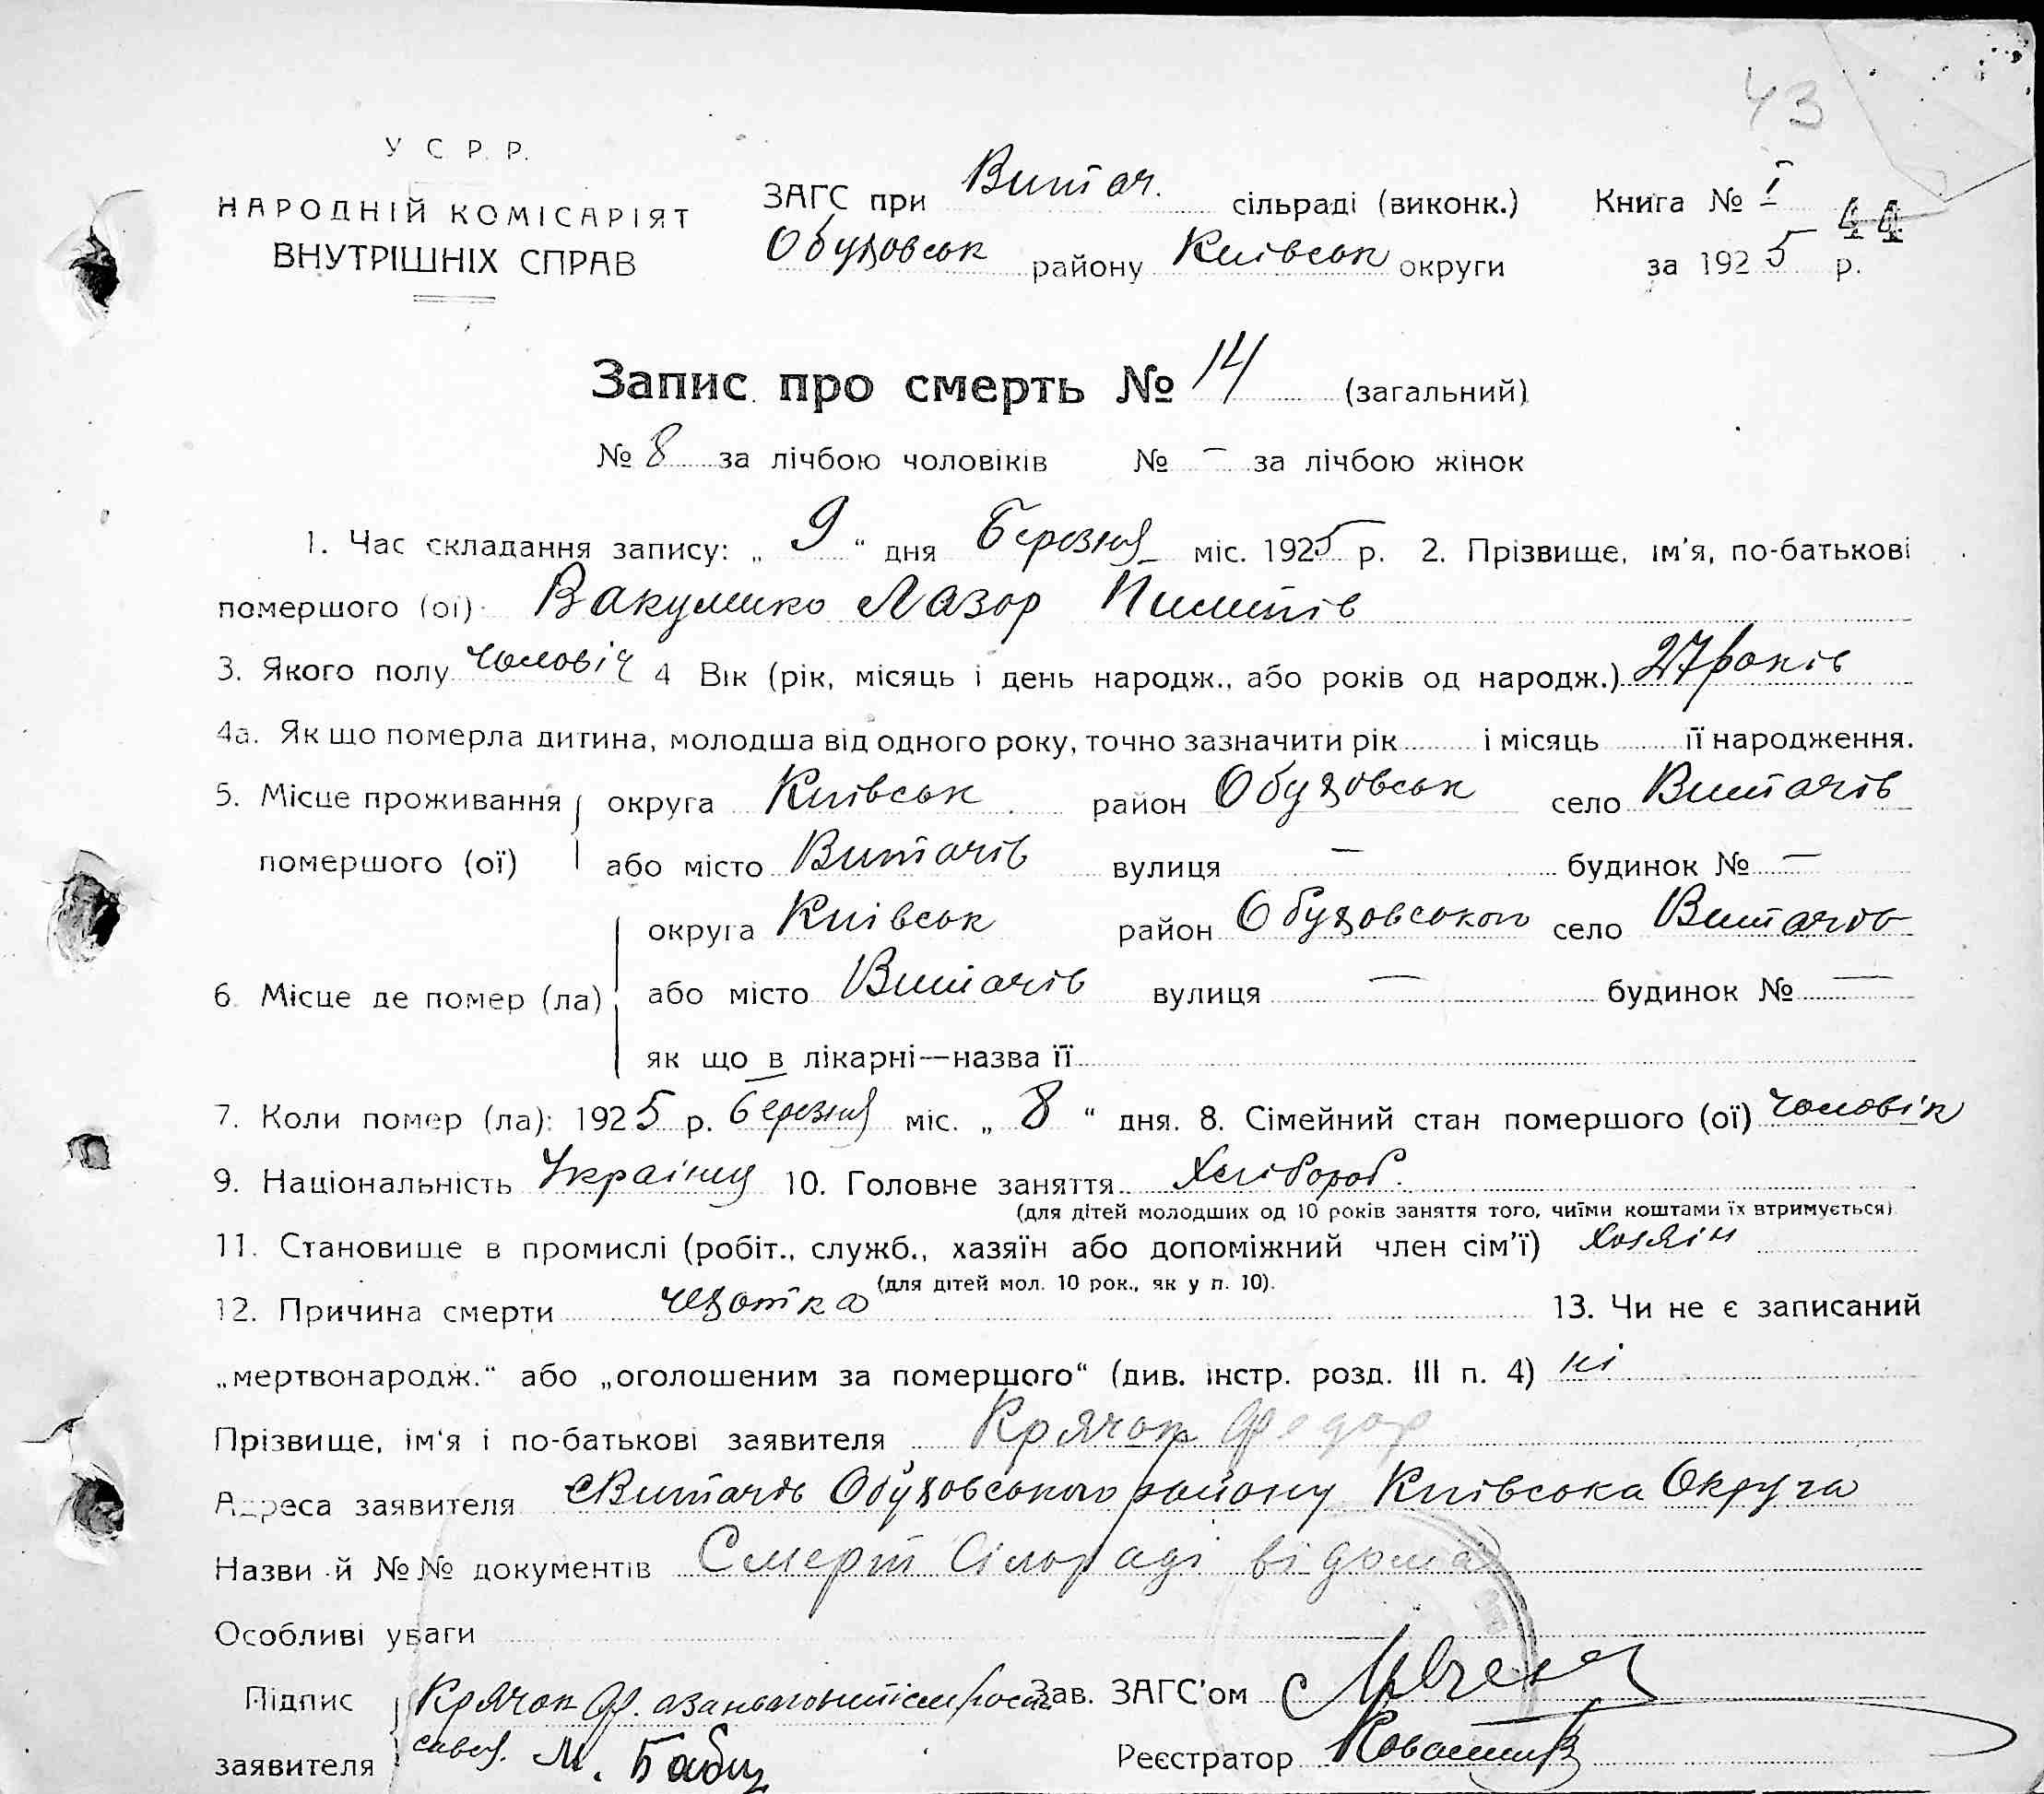 43
У С Р. Р.
НАРОДНІЙ КОМІСАРІЯТ
ВНУТРІШНІХ СПРАВ
ЗАГС при Витач. сільраді (виконк.)
Обуховськ району Київськ округи
Книга № I 44
за 1925 р.
Запис про смерть № 14 (загальний)
№ 8 за лічбою чоловіків № – за лічбою жінок
1. Час складання запису: „ 9 “ дня березня міс. 1925 р. 2. Прізвище, ім'я, по-батькові
помершого (ої) Вакуленко Лазор Пилипів
3. Якого полу чоловіч 4 Вік (рік, місяць і день народж., або років од народж.) 27 років
4а. Як що померла дитина, молодша від одного року, точно зазначити рік і місяць її народження.
5. Місце проживання округа Київськ район Обуховськ село Витачів
помершого (ої) або місто Витачів вулиця – будинок № –
округа Київськ район Обуховського село Витачів
6. Місце де помер (ла) або місто Витачів вулиця – будинок № –
як що в лікарні—назва її
7. Коли помер (ла): 1925 р. березня міс. „ 8 “ дня. 8. Сімейний стан помершого (ої) чоловік
9. Національність Українц 10. Головне заняття Хлібороб.
(для дітей молодших од 10 років заняття того, чиїми коштами їх втримується)
11. Становище в промислі (робіт., служб., хазяїн або допоміжний член сім'ї) хозяін
(для дітей мол. 10 рок., як у п. 10).
12. Причина смерти чахотка 13. Чи не є записаний
„мертвонародж.“ або „оголошеним за помершого“ (див. інстр. розд. III п. 4) ні
Прізвище, ім'я і по-батькові заявителя Крячок Федор
Адреса заявителя с Витачів Обуховського району Київська Округа
Назви й №№ документів Смерт Сільраді відома
Особливі уваги
Підпис Крячок Ф. Зав. ЗАГС'ом
заявителя М. Бабиц Реєстратор